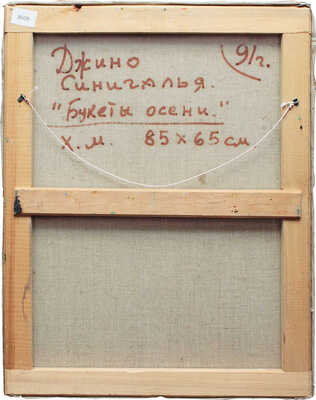 Джино 91г.
Синигалья.
"Букеты осени."
х.м. 85х65см